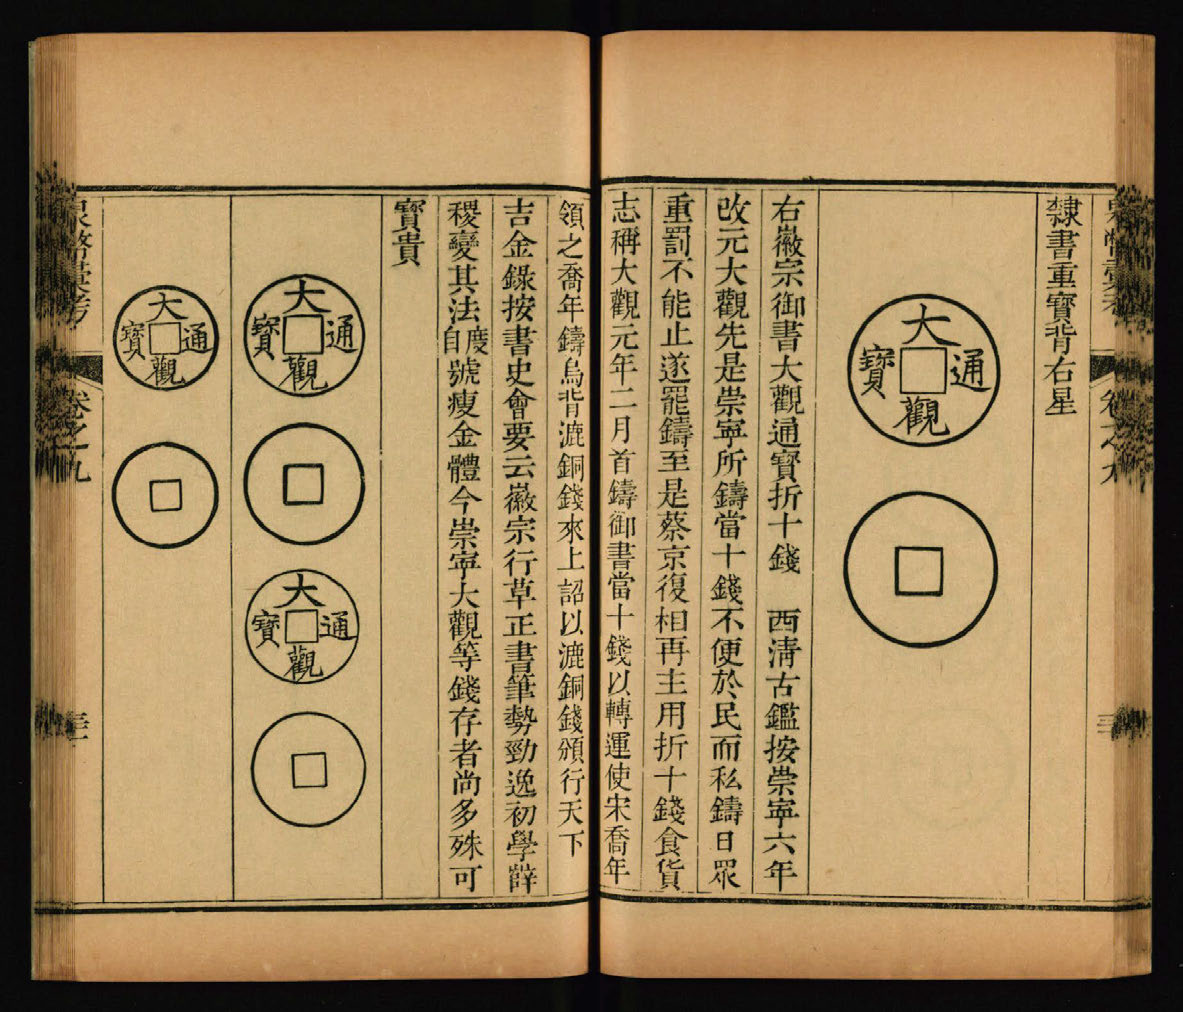 隸書重寶背右星
大觀通寶
右徽宗御書大觀通寶折十錢 西淸古鑑按崇寧六年
改元大觀先是崇寧所鑄當十錢不便於民而私鑄日眾
重罰不能止遂罷鑄至是蔡京復相再主用折十錢食貨
志稱大觀元年二月首鑄御書當十錢以轉運使宋喬年
領之喬年鑄烏背漉銅錢來上詔以漉銅錢頒行天下
吉金錄按書史會要云徽宗行草正書筆勢勁逸初學薛
稷變其法度自號瘦金體今崇寧大觀等錢存者尚多殊可
寶貴
大觀通寶
大觀通寶
大觀通寶
泉幣彙考
卷之九